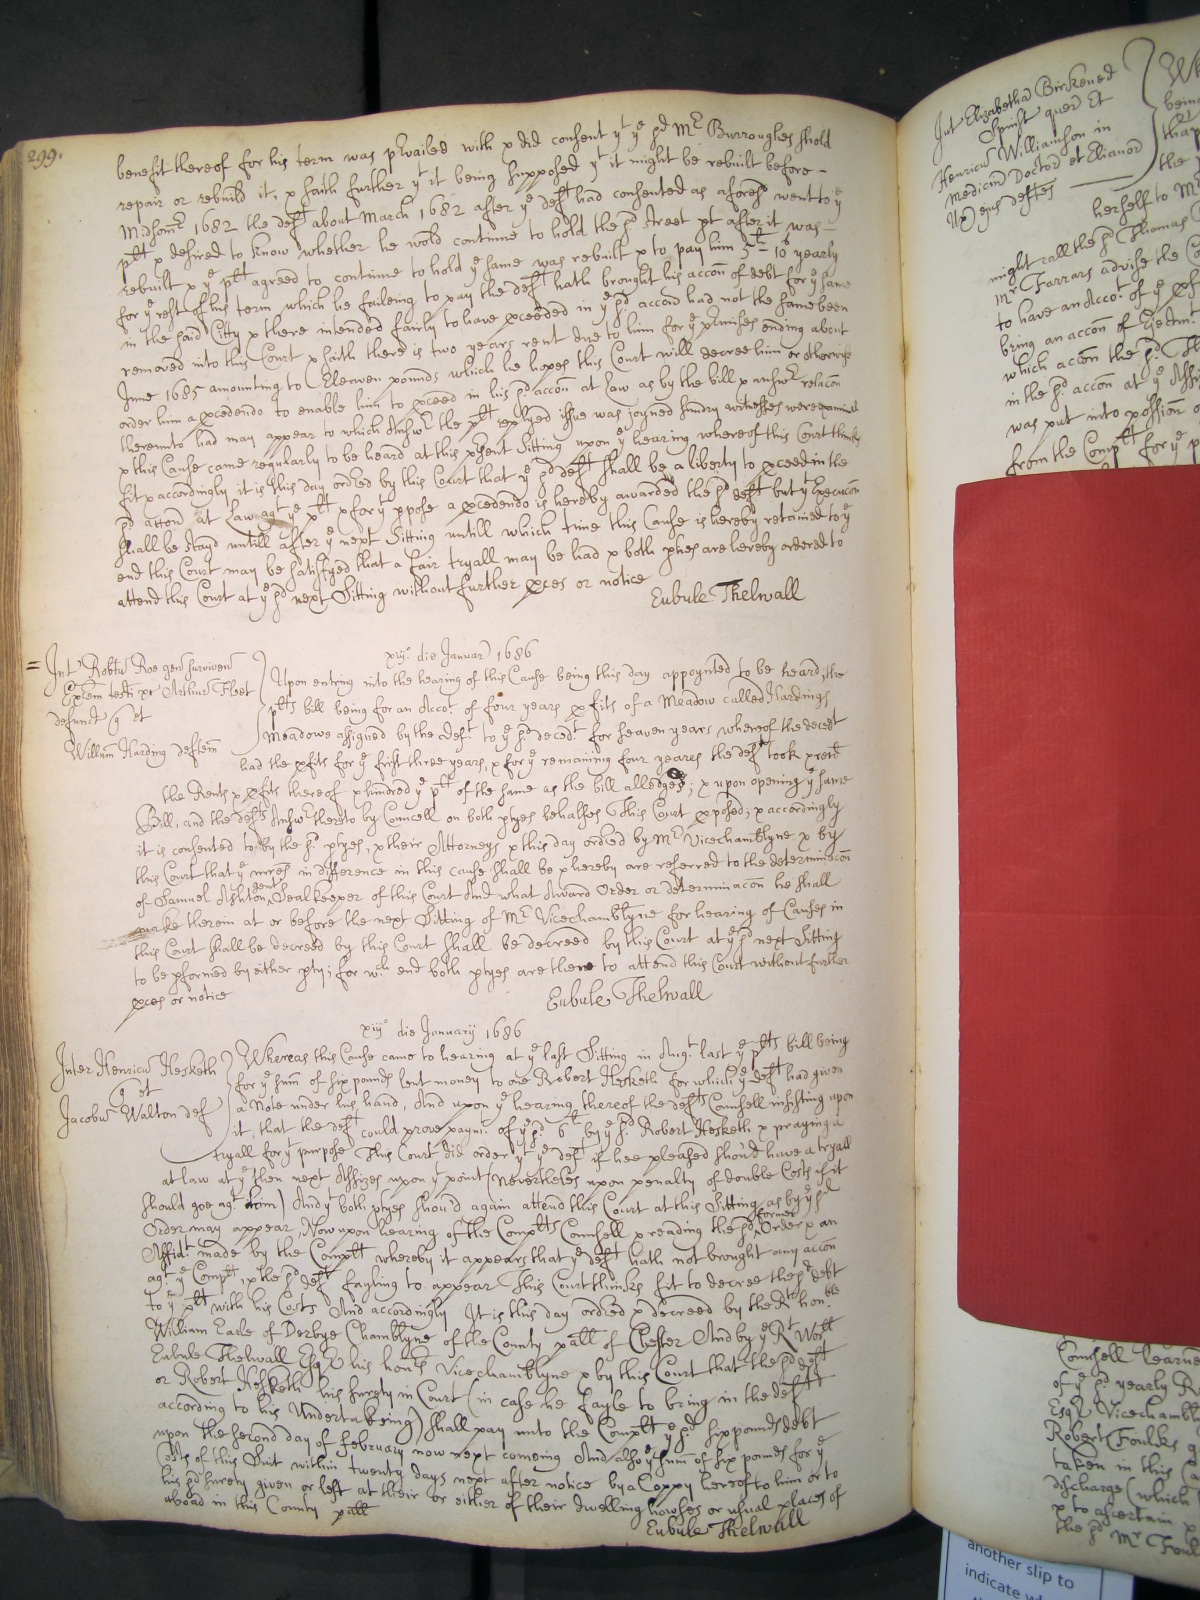 299.
benefit thereof for his term was pvailed with x did consent yt ye sd Mr Burroughes shold
repair or rebuild it, x saith further yt it being supposed yt it might be rebuilt before
Midsomr 1682 the deft about March 1682 after ye deft had consented as aforesd went to ye
plt x desired to know whether he wold continue to hold the sd street pt after it was
rebuilt x ye plt agreed to continue to hold ye same was rebuilt x to pay him 5li 10s yearly
for ye rest of his term which he faileing to pay the deft hath brought his accon of debt for ye same
in the said Citty x there intended fairly to have pceeded in ye sd accon had not the same been
removed into this Court x saith there is two years rent due to him for ye pmises ending about
June 1685 amounting to Eleaven pounds which he hopes this Court will decree him or otherwise
order him a pcedendo to enable him to pceed in his sd accon at law as by the bill x answr relacon
thereunto had may appear to which Answr the plt replyed issue was joyned sundry witnesses were examined
x this Cause came regularly to be heard at this psent Sitting upon ye hearing whereof this Court thinks
fit x accordingly it is this day ordred by this Court that ye sd deft shall be a liberty to pceed in the
sd accon at Law agt ye plt x for yt ppose a pcedendo is hereby awarded the sd deft but yt Execucon
shall be stayd untill after ye next Sitting untill which time this Cause is hereby retained to ye
end this Court may be satisfyed that a fair tryall may be had x both pties are hereby ordered to
attend this Court at ye sd next Sitting without further pces or notice
Eubule Thelwall
xiijo die Januar 1686
= Int Robtu Roe gen surviven
Extem testi xt Arthur Fleet
defunct q et
Willum Harding deftem
Upon entring into the hearing of this Cause being this day appoynted to be heard, the
plts bill being for an Accot of four years pfits of a Meadow called Hardings
Meadowe assigned by the deft to ye sd decedt for seaven years whereof the decedt
had the pfits for ye first three years, x for ye remaining four yeares the deft took x recd
the Rents x pfits thereof x hindred ye plt of the same as the bill alledges; x upon opening ye same
Bill, and the defts Answr thereto by Councell on both ptyes behalfes This Court pposed; x accordingly
it is consented to by the sd ptyes, x their Attorneys x this day ordred by Mr Vicechamblyne x by
this Court that ye mres in difference in this cause shall be x hereby are referred to the determinacon
of Samuel Ashton gent Sealkeeper of this Court And what Award Order or determinacon he shall
make therein at or before the next Sitting of Mr Vicechamblyne for hearing of Causes in
this Court shall be decreed by this Court shall be decreed by this Court at ye sd next Sitting
to be pformed by either pty; for wch end both ptyes are there to attend this Court without further
pces or notice
Eubule Thelwall
xiijo die January 1686
Inter Henricu Hesketh
q et
Jacobu Walton def
Whereas this Cause came to hearing at ye last Sitting in Augt last ye plts bill being
for ye sum of six pounds lent money to one Robert Hesketh for which ye deft had given
a Note under his hand, And upon ye hearing thereof the defts Councell insisting upon
it, that the deft could prove paymt of ye sd 6li by ye sd Robert Hesketh x praying a
tryall for yt purpose This Court did order yt ye deft if hee pleased should have a tryall
at law at ye then next Assizes upon yt point (Nevertheles upon penalty of double Costs if it
should goe agt him) And yt both ptyes should again attend this Court at this Sitting as by ye sd
Order may appear, Now upon hearing of the Complts Councell x reading the sd former Order x an
Affidt made by the Complt whereby it appears that ye deft hath not brought any accon
agt ye Complt, x the sd deft fayling to appear This Court thinks fit to decree the sd debt
to ye plt with his Costs And accordingly It is this day ordred x decreed by the Rt honble
William Earle of Derbye Chamblyne of the County pall of Chester And by ye Rt Worll
Eubule Thelwall Esqr his honrs Vicechamblyne x by this Court that the sd deft
or Robert Hesketh his surety in Court (in case he fayle to bring in the deft
according to his Undertakeing) shall pay unto the Complt ye sd six pounds debt
upon the second day of february now next comeing And also ye sum of six pounds for ye
Costs of this Suit within twenty days next after notice by a Coppy hereof to him or to
his sd surety given or left at their or either of their dwelling howses or usual places of
aboad in this County pall
Eubule Thelwall
Int Elizabetha Birkened
Spinst quer Et
Henricu Williamson in
Medicin Doctor et Elianor
Ux ejus deftes
being
that
the
herself to M
might call the sd Thomas
Mr Farrars advise the Co
to have an Accot of ye pf
bring an accon of Ejectmt
which accon the sd Th
in the sd accon at ye Assi
was put into possion o
from the Complt for ye p
Councell learne
of ye sd yearly R
Esqr Vicechambl
Robert Foulkes g
taken in this C
discharge (which
x to ascertain
the sd Mr Foul
another slip to
indicate wh